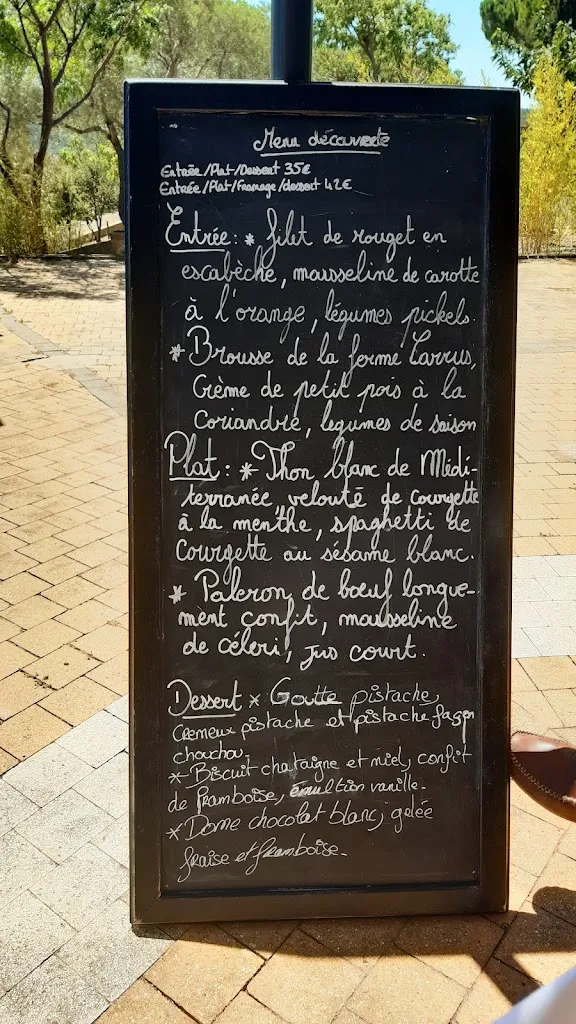 Menu découverte
Entrée/Plat/Dessert 35€
Entrée/Plat/Fromage/dessert 42€
Entrée : * filet de rouget en
escabèche, mousseline de carotte
à l'orange, légumes pickels.
* Brousse de la ferme Carrus,
Crème de petit pois à la
Coriandre, legumes de saison
Plat : * Thon blanc de Médi-
terranée, velouté de courgette
à la menthe, spaghetti de
Courgette au sésame blanc.
* Paleron de bœuf longue-
ment confit, mousseline
de céleri, jus court.
Dessert * Goutte pistache,
Crémeux pistache et pistache façon
chouchou.
* Biscuit chataigne et miel, confit
de framboise, émultion vanille.
* Dome chocolat blanc, gelée
fraise et framboise.